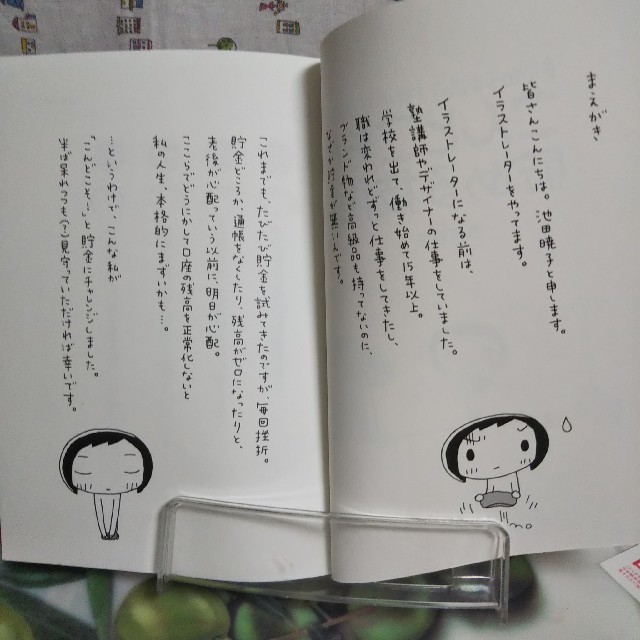 まえがき
皆さんこんにちは。池田暁子と申します。
イラストレーターをやってます。
イラストレーターになる前は、
塾講師やデザイナーの仕事をしていました。
学校を出て、働き始めて15年以上。
職は変われどずっと仕事をしてきたし、
ブランド物など高級品も持ってないのに、
なぜか貯金が無いんです。
これまでも、たびたび貯金を試みてきたのですが、毎回挫折。
貯金どころか、通帳をなくしたり、残高がゼロになったりと、
老後が心配っていう以前に、明日が心配。
ここらでどうにかして口座の残高を正常化しないと
私の人生、本格的にまずいかも…。
…というわけで、こんな私が
「こんどこそ…」と貯金にチャレンジしました。
半ば呆れつつも(?)見守っていただければ幸いです。